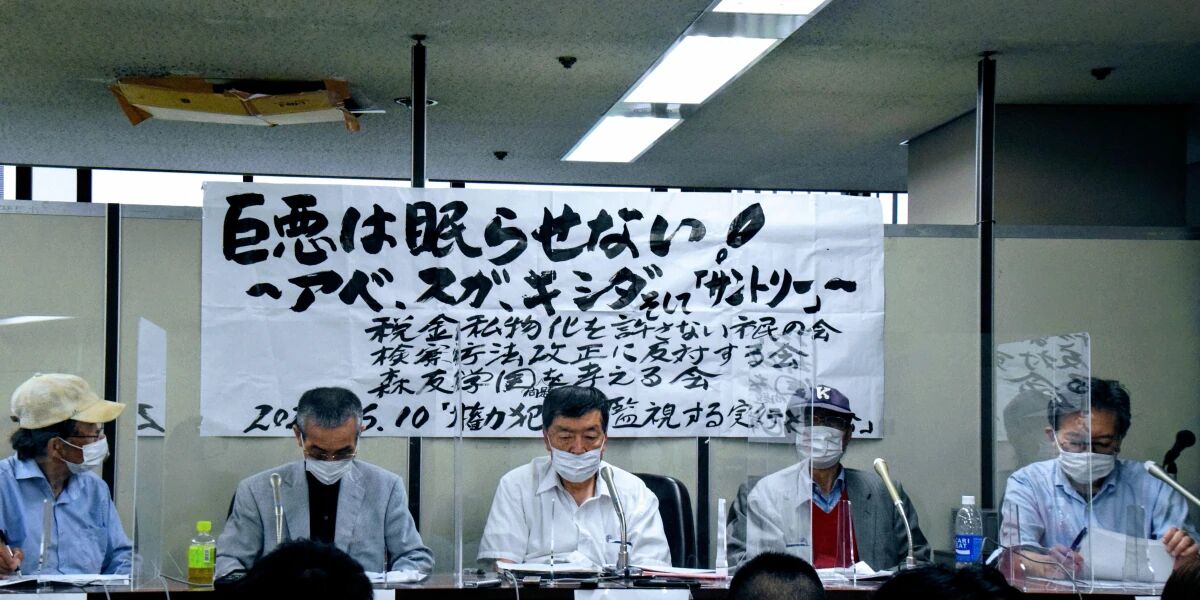 巨悪は眠らせない!
~アベ、スガ、キシダそして「サントリー」~
税金私物化を許さない市民の会
検察庁法改正に反対する会
森友学園問題を考える会
.10 権力犯 監視する実行
K